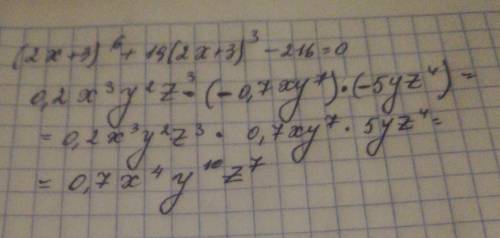 (2x+3)⁶ + 19(2x+3)³ - 216 = 0
0,2x³y²z³ · (-0,7xy⁷) · (-5yz⁴) =
= 0,2x³y²z³ · 0,7xy⁷ · 5yz⁴ =
= 0,7x⁴y¹⁰z⁷